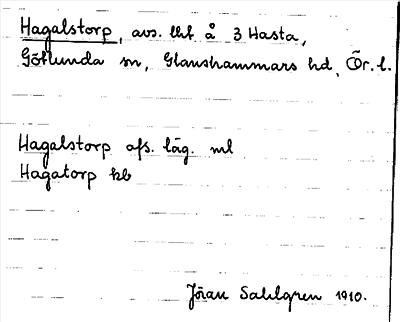 Hagalstorp, avs. lht å 3 Hasta,
Götlunda sn, Glanshammars hd, Ör. l.
Hagalstorp afs. läg. ml
Hagatorp kb
Jöran Sahlgren 1910.